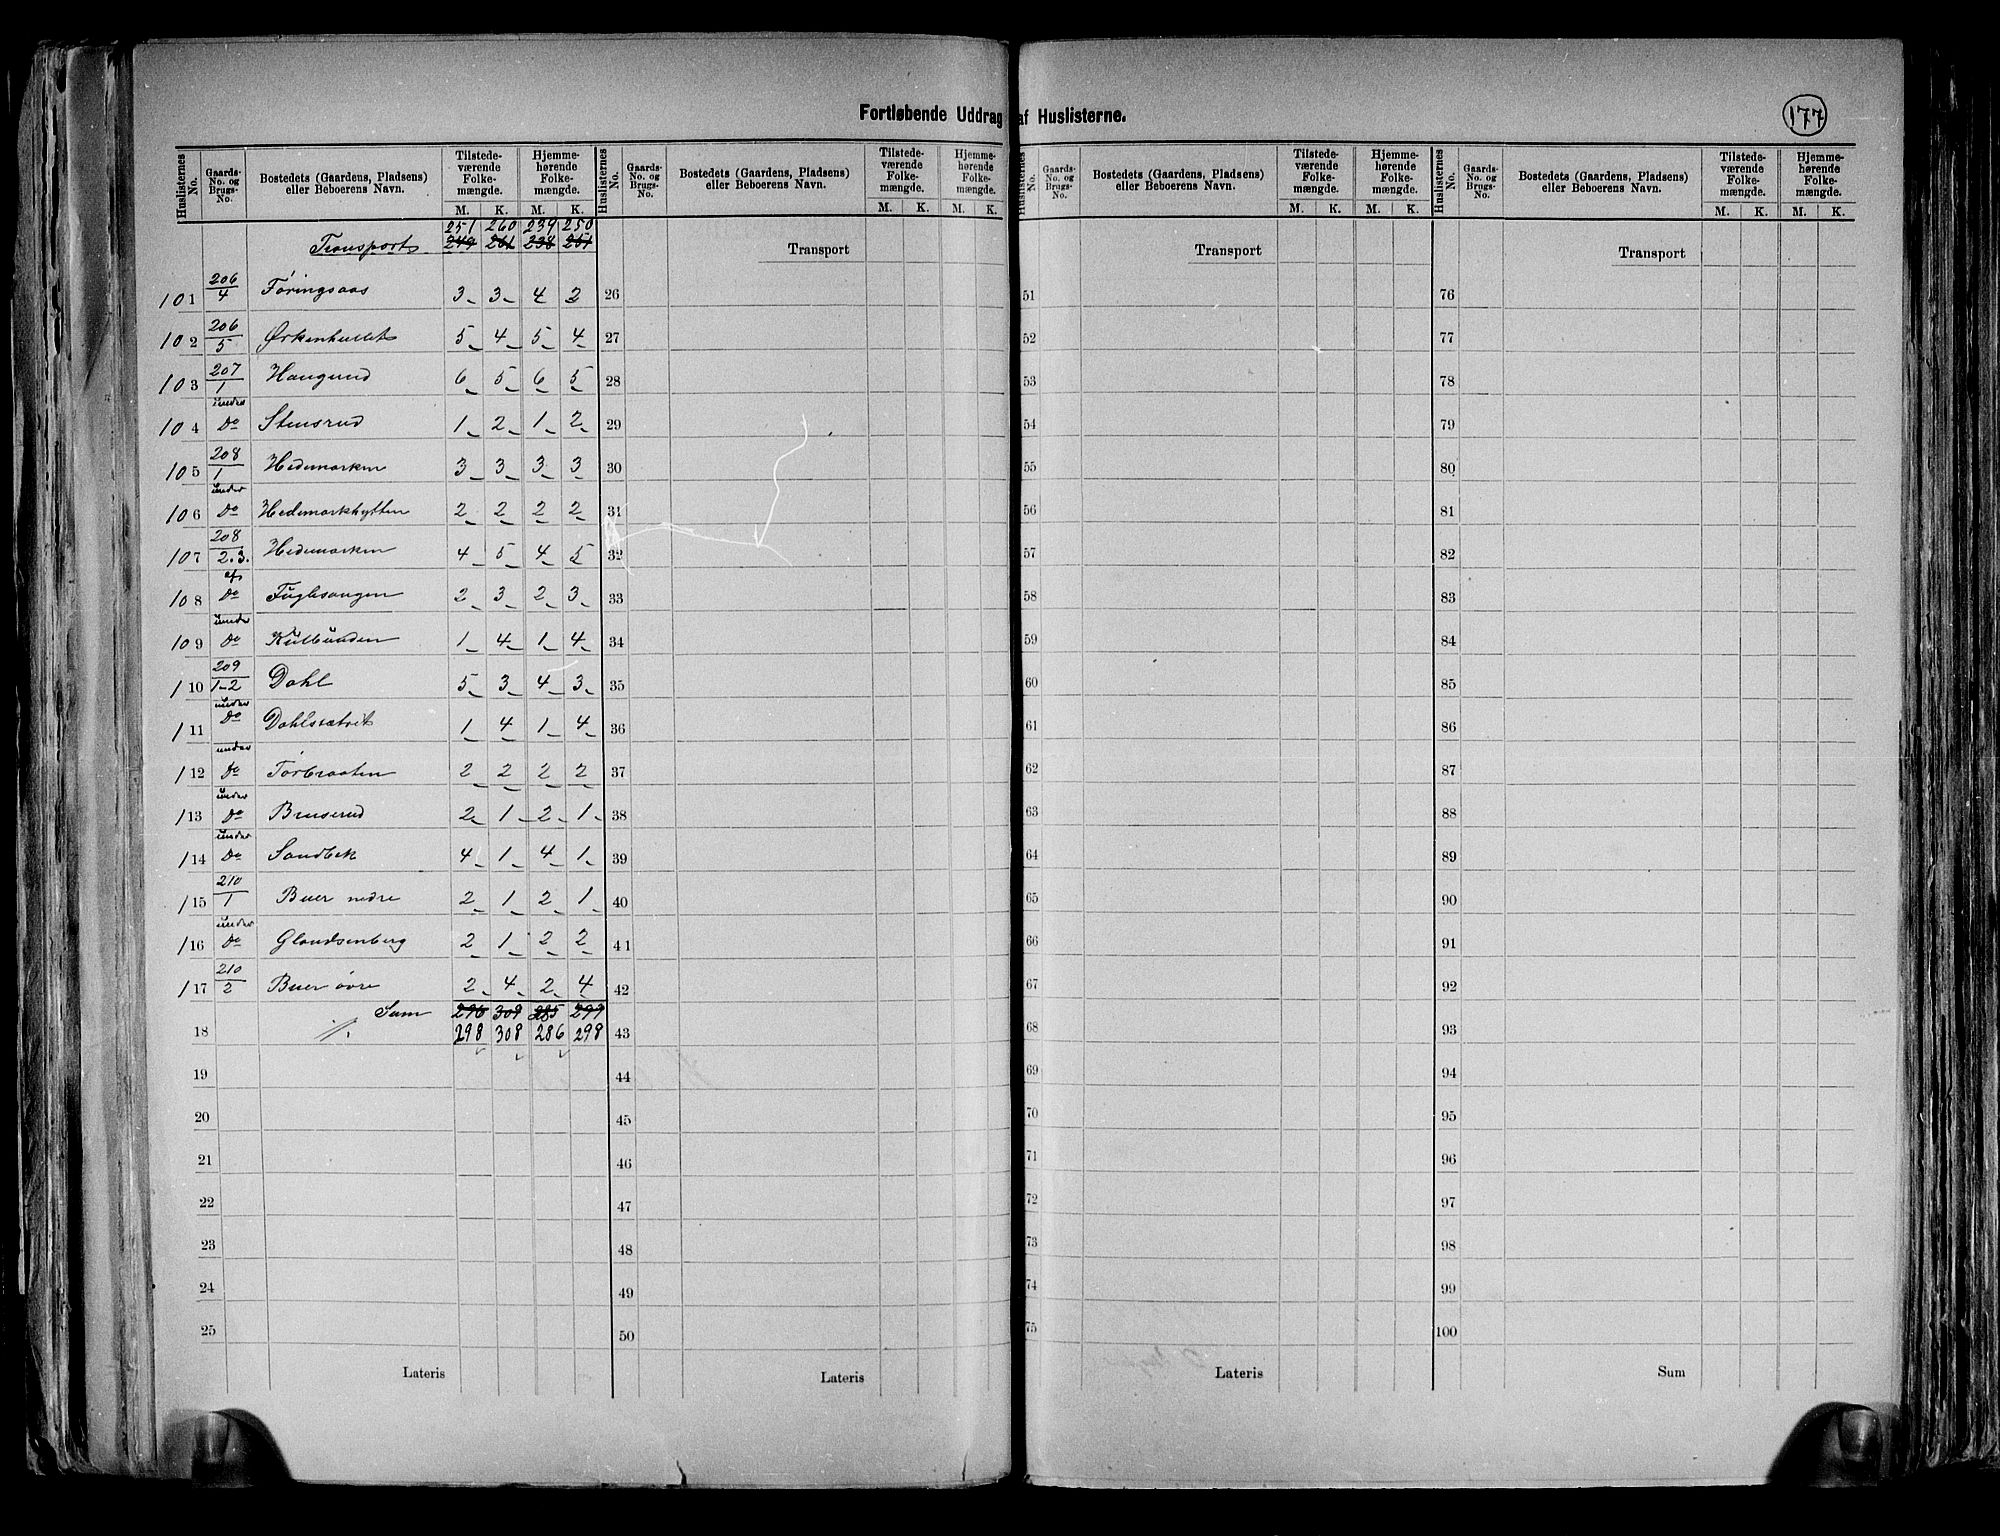 Fortløbende Uddrag af Huslisterne.
177
Huslisternes No. Gaards-No. og Brugs-No. Bostedets (Gaardens, Pladsens) eller Beboerens Navn. Tilstede-værende Folke-mængde. M. K. Hjemme-hørende Folke-mængde. M. K.
251 260 239 250
Transport 249 261 238 251
101 206/4 Føringsaas 3 3 4 2
102 206/5 Ørkenhullet 5 4 5 4
103 207/1 Haugund 6 5 6 5
104 under Do Stensrud 1 2 1 2
105 208/1 Hedemarken 3 3 3 3
106 under Do Hedemarkhytten 2 2 2 2
107 208/2.3. Hedemarken 4 5 4 5
108 af Do Fuglesangen 2 3 2 3
109 under Do Kulbunden 1 4 1 4
110 209/1-2 Dahl 5 3 4 3
111 under Do Dahlsætret 1 4 1 4
112 under Do Torbraaten 2 2 2 2
113 under Do Bruserud 2 1 2 1
114 under Do Sandbek 4 1 4 1
115 210/1 Buer nedre 2 1 2 1
116 under Do Glaudsenberg 2 1 2 2
117 210/2 Buer øvre 2 4 2 4
Sum 296 309 285 299
18 298 308 286 298
19
20
21
22
23
24
25
Lateris
Huslisternes No. Gaards-No. og Brugs-No. Bostedets (Gaardens, Pladsens) eller Beboerens Navn. Tilstede-værende Folke-mængde. M. K. Hjemme-hørende Folke-mængde. M. K.
Transport
26
27
28
29
30
31
32
33
34
35
36
37
38
39
40
41
42
43
44
45
46
47
48
49
50
Lateris
Huslisternes No. Gaards-No. og Brugs-No. Bostedets (Gaardens, Pladsens) eller Beboerens Navn. Tilstede-værende Folke-mængde. M. K. Hjemme-hørende Folke-mængde. M. K.
Transport
51
52
53
54
55
56
57
58
59
60
61
62
63
64
65
66
67
68
69
70
71
72
73
74
75
Lateris
Huslisternes No. Gaards-No. og Brugs-No. Bostedets (Gaardens, Pladsens) eller Beboerens Navn. Tilstede-værende Folke-mængde. M. K. Hjemme-hørende Folke-mængde. M. K.
Transport
76
77
78
79
80
81
82
83
84
85
86
87
88
89
90
91
92
93
94
95
96
97
98
99
100
Sum